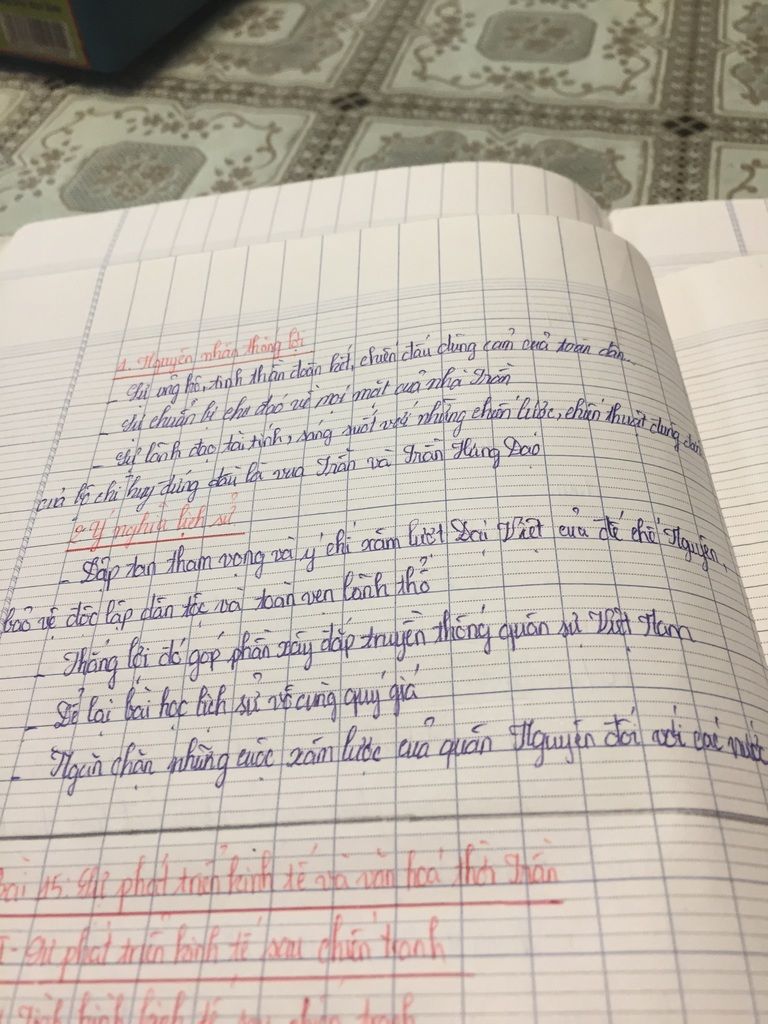 1. Nguyên nhân thắng lợi
- Sự ủng hộ, tinh thần đoàn kết, chiến đấu dũng cảm của toàn dân.
- Sự chuẩn bị chu đáo về mọi mặt của nhà Trần
- Sự lãnh đạo tài tình, sáng suốt với những chiến lược, chiến thuật đúng đắn
của bộ chỉ huy đứng đầu là vua Trần và Trần Hưng Đạo
2. Ý nghĩa lịch sử
- Đập tan tham vọng và ý chí xâm lược Đại Việt của đế chế Nguyên,
bảo vệ độc lập dân tộc và toàn vẹn lãnh thổ
- Thắng lợi đó góp phần xây đắp truyền thống quân sự Việt Nam
- Để lại bài học lịch sử vô cùng quý giá
- Ngăn chặn những cuộc xâm lược của quân Nguyên đối với các nước
Bài 15: Sự phát triển kinh tế và văn hoá thời Trần
I- Sự phát triển kinh tế sau chiến tranh
Tình hình kinh tế sau chiến tranh